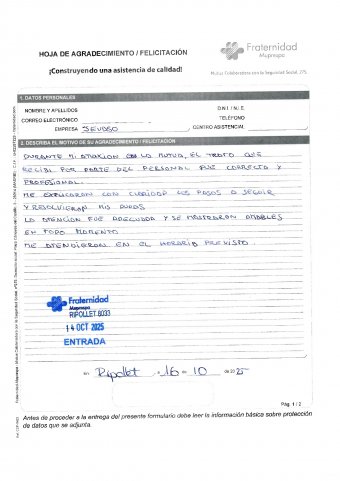 HOJA DE AGRADECIMIENTO / FELICITACIÓN
¡Construyendo una asistencia de calidad!
Fraternidad
Muprespa
Mutua Colaboradora con la Seguridad Social, 275
1. DATOS PERSONALES
NOMBRE Y APELLIDOS
D.N.I. / N.I.E.
CORREO ELECTRÓNICO
TELÉFONO
EMPRESA
CENTRO ASISTENCIAL
2. DESCRIBA EL MOTIVO DE SU AGRADECIMIENTO / FELICITACIÓN
DURANTE MI ATENCION CON LA MUTUA, EL TRATO QUE
RECIBI POR PARTE DEL PERSONAL FUE CORRECTO Y
PROFESIONAL.
ME EXPLICARON CON CLARIDAD LOS PASOS A SEGUIR
Y RESOLVIERON MIS DUDAS
LA ATENCION FUE ADECUADA Y SE MOSTRARON AMABLES
EN TODO MOMENTO
ME ATENDIERON EN EL HORARIO PREVISTO.
Fraternidad
Muprespa
RIPOLLET 8033
14 OCT 2025
ENTRADA
en Ripollet a 16 - 10 de 2025
Pág. 1 / 2
Antes de proceder a la entrega del presente formulario debe leer la información básica sobre protección
de datos que se adjunta.